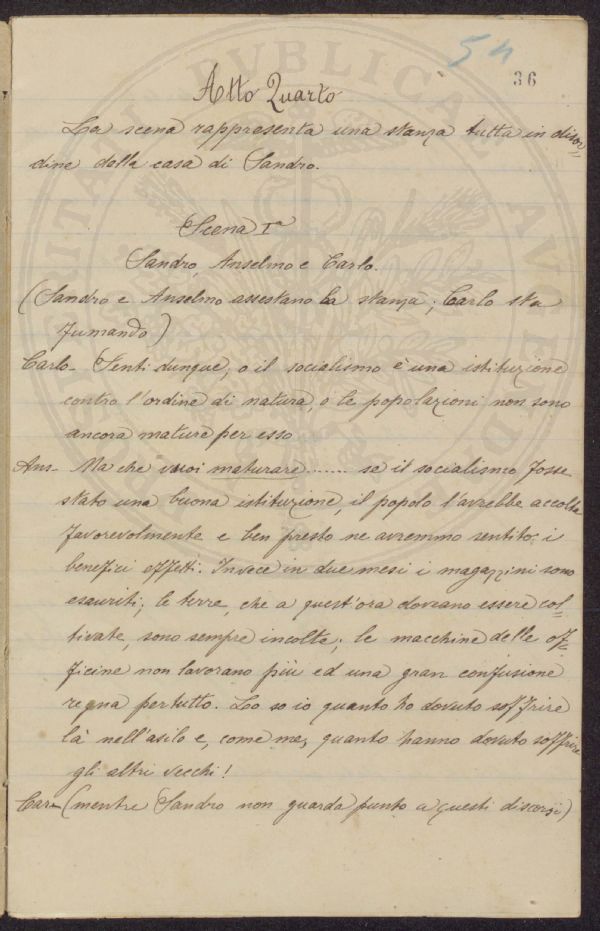 54
36
Atto Quarto
La scena rappresenta una stanza tutta in disor=
dine della casa di Sandro.
Scena I^a
Sandro, Anselmo e Carlo.
(Sandro e Anselmo assestano la stanza; Carlo sta
fumando)
Carlo - Senti dunque, o il socialismo è una istituzione
contro l'ordine di natura, o le popolazioni non sono
ancora mature per esso
Ans. Ma che vuoi maturare ....... se il socialismo fosse
stato una buona istituzione, il popolo l'avrebbe accolta
favorevolmente e ben presto ne avremmo sentito i
benefici effetti. Invece in due mesi i magazzini sono
esauriti; le terre, che a quest'ora doveano essere col=
tivate, sono sempre incolte; le macchine delle of=
ficine non lavorano più ed una gran confusione
regna pertutto. Lo so io quanto ho dovuto soffrire
là nell'asilo e, come me, quanto hanno dovuto soffrire
gli altri vecchi!
Car- (mentre Sandro non guarda punto a questi discorsi)
PVBLICA